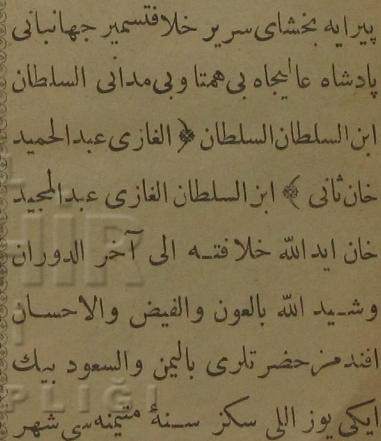 پیرایه بخشای سریر خلافتسمیر جهانبانی
پادشاه عالیجاه بی همتا و بی مدانی السلطان
ابن السلطان السلطان ﴿ الغازی عبدالحمید
خان ثانی ﴾ ابن السلطان الغازی عبدالمجید
خان ایدالله خلافتـه الی آخر الدوران
وشـید الله بالعون والفیض والاحسان
افندمز حضرتلری بالیمن والسعود بیك
ایکی یوز اللی سکز سـنهٔ متیمنه سی شهر